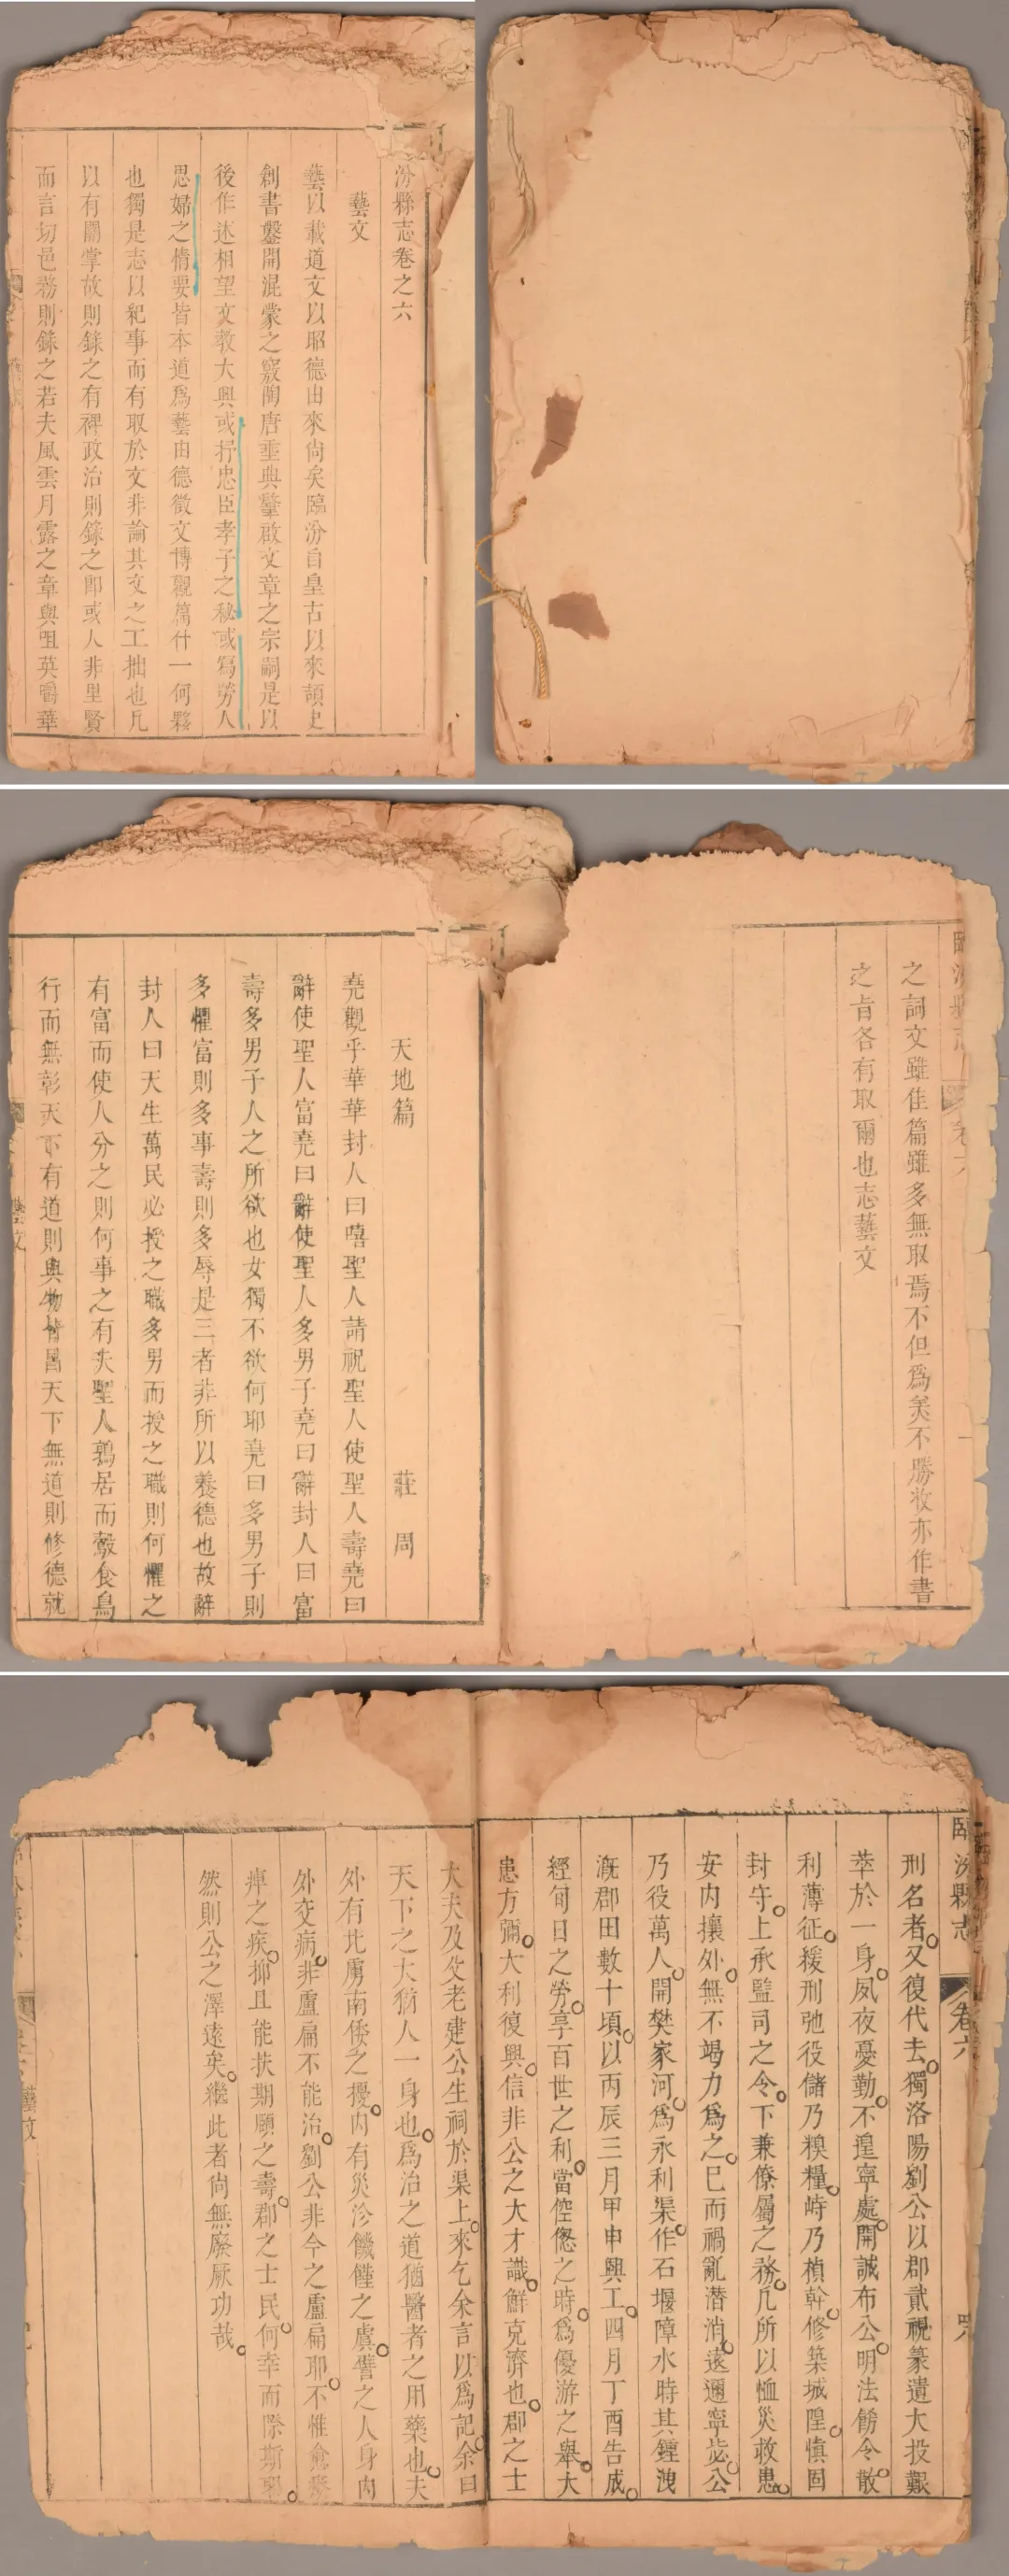 汾縣志卷之六
藝文
藝以載道文以昭德由來尚矣臨汾自皇古以來頡史
創書鑿開混蒙之竅陶唐垂典肇啟文章之宗嗣是以
後作述相望文教大興或抒忠臣孝子之秘或寫勞人
思婦之情要皆本道為藝由德徵文博觀篇什一何夥
也獨是志以紀事而有取於文非論其文之工拙也凡
以有關掌故則錄之有裨政治則錄之即或人非里賢
而言切邑務則錄之若夫風雲月露之章與咀英嚼華
之詞文雖佳篇雖多無取焉不但為美不勝收亦作書
之旨各有取爾也志藝文
天地篇 莊周
堯觀乎華華封人曰嘻聖人請祝聖人使聖人壽堯曰
辭使聖人富堯曰辭使聖人多男子堯曰辭封人曰富
壽多男子人之所欲也女獨不欲何耶堯曰多男子則
多懼富則多事壽則多辱是三者非所以養德也故辭
封人曰天生萬民必授之職多男而授之職則何懼之
有富而使人分之則何事之有夫聖人鶉居而鷇食鳥
行而無彰天下有道則與物皆昌天下無道則修德就
臨汾縣志 卷六
刑名者又復代去獨洛陽劉公以郡貳視篆遺大投艱
萃於一身夙夜憂勤不遑寧處開誠布公明法飭令散
利薄征緩刑弛役儲乃糗糧峙乃楨幹修築城隍慎固
封守上承監司之令下兼僚屬之務凡所以恤災救患
安內攘外無不竭力為之已而禍亂潛消遠邇寧謐公
乃役萬人開樊家河為永利渠作石堰障水時其鍾洩
溉郡田數十頃以丙辰三月甲申興工四月丁酉告成
經旬日之勞享百世之利當倥傯之時為優游之舉大
患方彌大利復興信非公之大才識鮮克濟也郡之士
大夫及父老建公生祠於渠上來乞余言以為記余曰
天下之大猶人一身也為治之道猶醫者之用藥也夫
外有北虜南倭之擾內有災沴饑饉之虞譬之人身內
外交病非盧扁不能治劉公非今之盧扁耶不惟愈瘵
痺之疾抑且能扶期頤之壽郡之士民何幸而際斯
然則公之澤遠矣繼此者尚無廢厥功哉